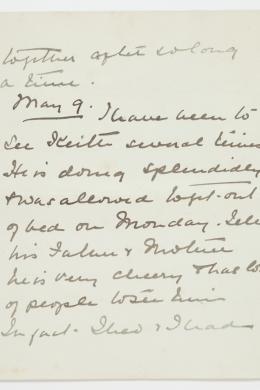 together after so long
a time.
May 9. I have been to
see Keith several times
He is doing splendidly
& was allowed to get out
of bed on Monday. Tell
his Father & Mother
he is very cheery & has lo
of people to see him
In fact Theo & I had